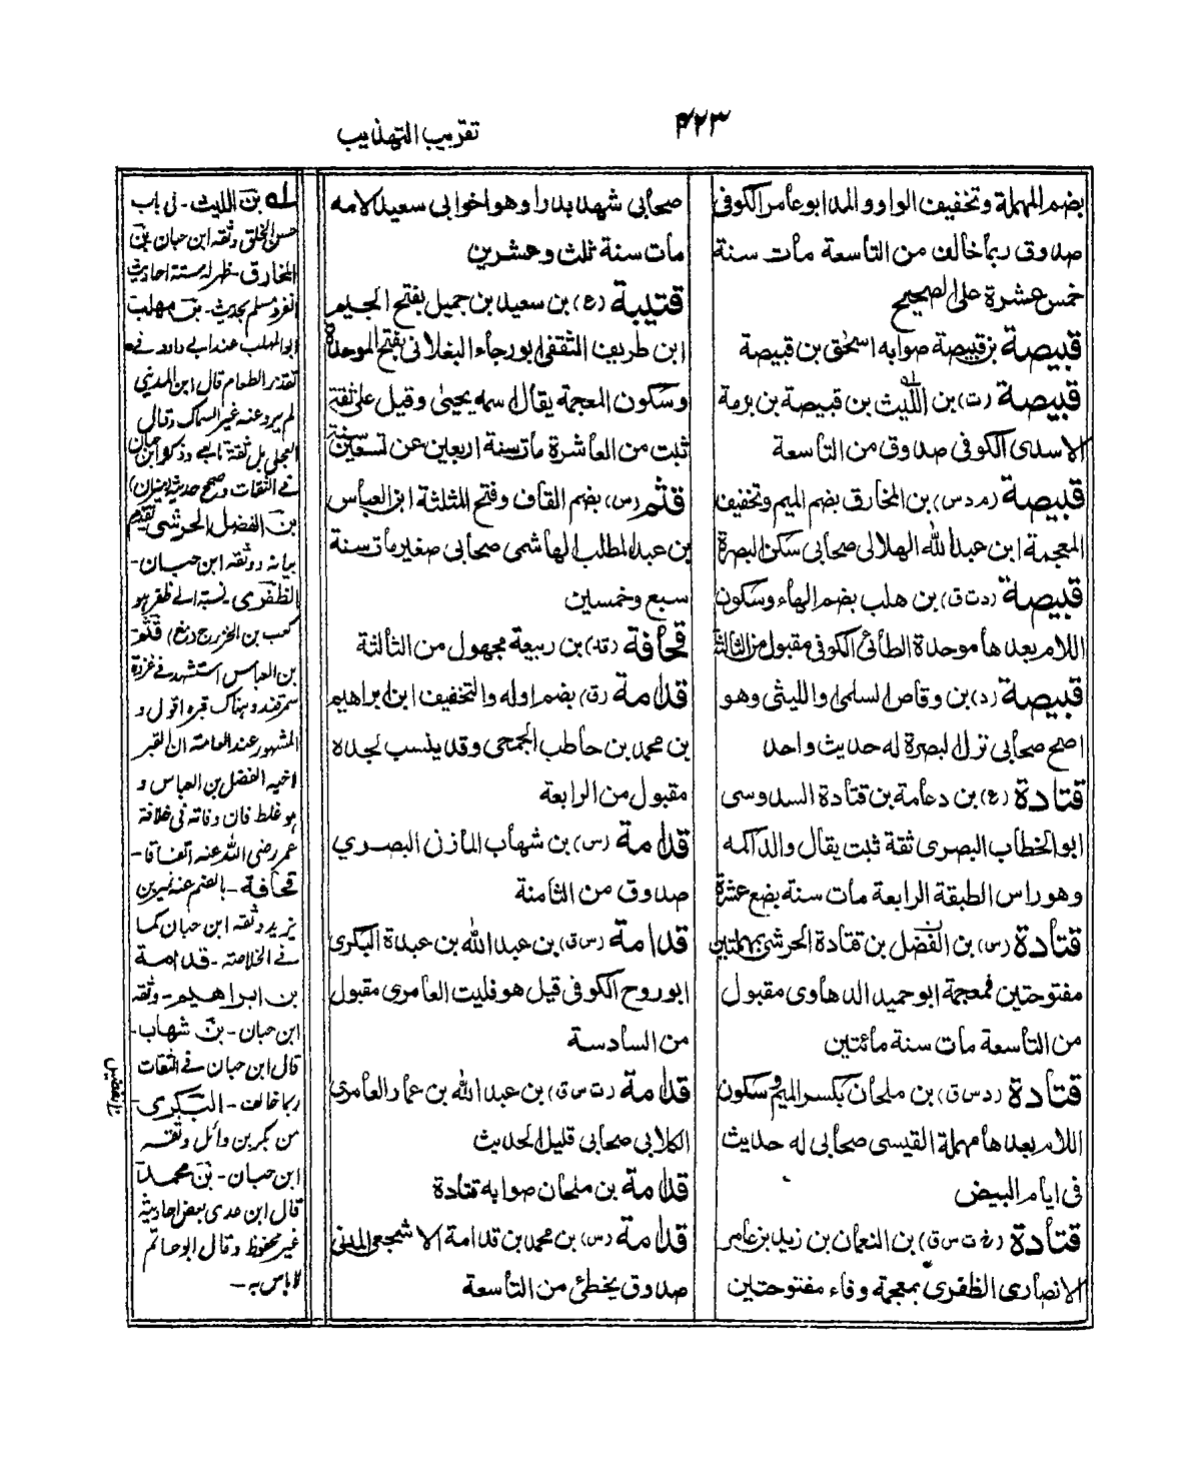 ۴۲۳
تقريب التهذيب
بضم المهملة وتخفيف الواو والمد ابوعامر الكوفى
صدوق ربما خالف من التاسعة مات سنة
خمس عشرة على الصحيح
قبيصة بن قبيصة صوابه اسحق بن قبيصة
قبيصة (ت) بن الليث بن قبيصة بن برمة
الاسدى الكوفى صدوق من التاسعة
قبيصة (م د س) بن المخارق بضم الميم وتخفيف
المعجمة ابن عبد الله الهلالى صحابى سكن البصرة
قبيصة (د ت ق) بن هلب بضم الهاء وسكون
اللام بعدها موحدة الطائى الكوفى مقبول من الثالثة
قبيصة (د) بن وقاص السلمى والليثى وهو
اصح صحابى نزل البصرة له حديث واحد
قتادة (ع) بن دعامة بن قتادة السدوسى
ابو الخطاب البصرى ثقة ثبت يقال ولد اكمه
وهو راس الطبقة الرابعة مات سنة بضع عشرة
قتادة (س) بن الفضل بن قتادة الحرشى بمهملتين
مفتوحتين فمعجمة ابو حميد الدهاوى مقبول
من التاسعة مات سنة مائتين
قتادة (د س ق) بن ملحان بكسر الميم وسكون
اللام بعدها مهملة القيسى صحابى له حديث
فى ايام البيض
قتادة (خ ت س ق) بن النعمان بن زيد بن عامر
الانصارى الظفرى بمعجمة وفاء مفتوحتين
صحابى شهد بدرا وهو اخو ابى سعيد لامه
مات سنة ثلث وعشرين
قتيبة (ع) بن سعيد بن جميل بفتح الجيم
ابن طريف الثقفى ابو رجاء البغلانى بفتح الموحدة
وسكون المعجمة يقال اسمه يحيى وقيل على ثقة
ثبت من العاشرة مات سنة اربعين عن تسعين سنة
قثم (س) بضم القاف وفتح المثلثة ابن العباس
بن عبد المطلب الهاشمى صحابى صغير مات سنة
سبع وخمسين
قحافة (قد) بن ربيعة مجهول من الثالثة
قدامة (ق) بضم اوله والتخفيف ابن ابراهيم
بن محمد بن حاطب الجمحى وقد ينسب لجده
مقبول من الرابعة
قدامة (س) بن شهاب المازنى البصرى
صدوق من الثامنة
قدامة (س ق) بن عبد الله بن عبدة البكرى
ابو روح الكوفى قيل هو فليت العامرى مقبول
من السادسة
قدامة (ت س ق) بن عبد الله بن عمار العامرى
الكلابى صحابى قليل الحديث
قدامة بن ملحان صوابه قتادة
قدامة (س) بن محمد بن قدامة الاشجعى المدنى
صدوق يخطئ من التاسعة
له بن الليث ـ فى باب
حسن الخلق وثقه ابن حبان بن
المخارق ـ ظهر له ستة احاديث
انفرد مسلم بحديث ـ بن مهلب
ابو المهلب عند ابى داود فى
تقذر الطعام قال ابن المدينى
لم يرو عنه غير السماك وقال
العجلى بل ثقة تابعى وذكره ابن حبان
فى الثقات وصحح حديثه (ميزان)
بن الفضل الحرشى تقدم
بيانه ووثقه ابن حبان ـ
الظفرى ـ نسبة الى ظفر هو
كعب بن الخزرج (مغ) قثم
بن العباس استشهد فى غزوة
سمرقند وهناك قبره اقول و
المشهور عند العامة ان القبر
اخيه الفضل بن العباس و
هو غلط فان وفاته فى خلافة
عمر رضى الله عنه اتفاقا ـ
قحافة ـ بالضم عنه نمير بن
يزيد وثقه ابن حبان كما
فى الخلاصة ـ قدامة
بن ابراهيم ـ وثقه
ابن حبان ـ بن شهاب ـ
قال ابن حبان فى الثقات
ربما خالف ـ البكرى ـ
من بكر بن وائل وثقه
ابن حبان ـ بن محمد
قال ابن عدى بعض احاديثه
غير محفوظ وقال ابو حاتم
لا باس به ـ